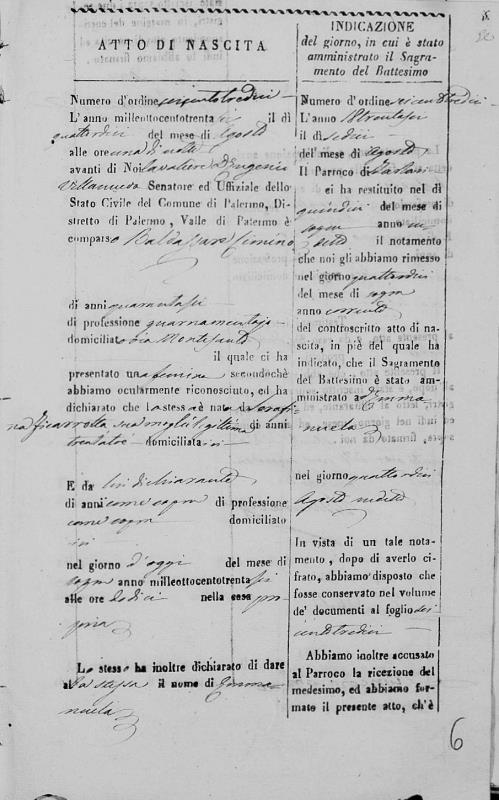 ATTO DI NASCITA
Numero d'ordine seicentotredici
L'anno milleottocentotrenta sei il dì
quattordici del mese di Agosto
alle ore una di notte
avanti di Noi Cavaliere D Eugenio
Senatore ed Uffiziale dello
Stato Civile del Comune di Palermo, Di-
stretto di Palermo, Valle di Palermo è
comparso Baldassare Cimino
di anni quarantasei
di professione
domiciliato via Montesanto
il quale ci ha
presentato una femina secondochè
abbiamo ocularmente riconosciuto, ed ha
dichiarato che la stessa è nata da Serafi-
na sua moglie legittima di anni
trentatre domiciliata ivi
E da lui dichiarante
di anni come sopra di professione
come sopra domiciliato
ivi
nel giorno d'oggi del mese di
sopra anno milleottocentotrenta sei
alle ore dodici nella casa pro-
pria
Lo stesso ha inoltre dichiarato di dare
a la stessa il nome di Emma-
nuela
INDICAZIONE
del giorno, in cui è stato
amministrato il Sagra-
mento del Battesimo
Numero d'ordine seicentotredici
L'anno 18trentasei
il dì sedici
del mese di Agosto
Il Parroco di
ci ha restituito nel dì
quindici del mese di
sopra anno su
detto il notamento
che noi gli abbiamo rimesso
nel giorno quattordici
del mese di sopra
anno corrente
del controscritto atto di na-
scita, in piè del quale ha
indicato, che il Sagramento
del Battesimo è stato am-
ministrato a Emma
nuela
nel giorno quattordici
Agosto sudetto
In vista di un tale nota-
mento, dopo di averlo ci-
frato, abbiamo disposto che
fosse conservato nel volume
de' documenti al foglio sei
centotredici
Abbiamo inoltre accusato
al Parroco la ricezione del
medesimo, ed abbiamo for-
mato il presente atto, ch'è
6